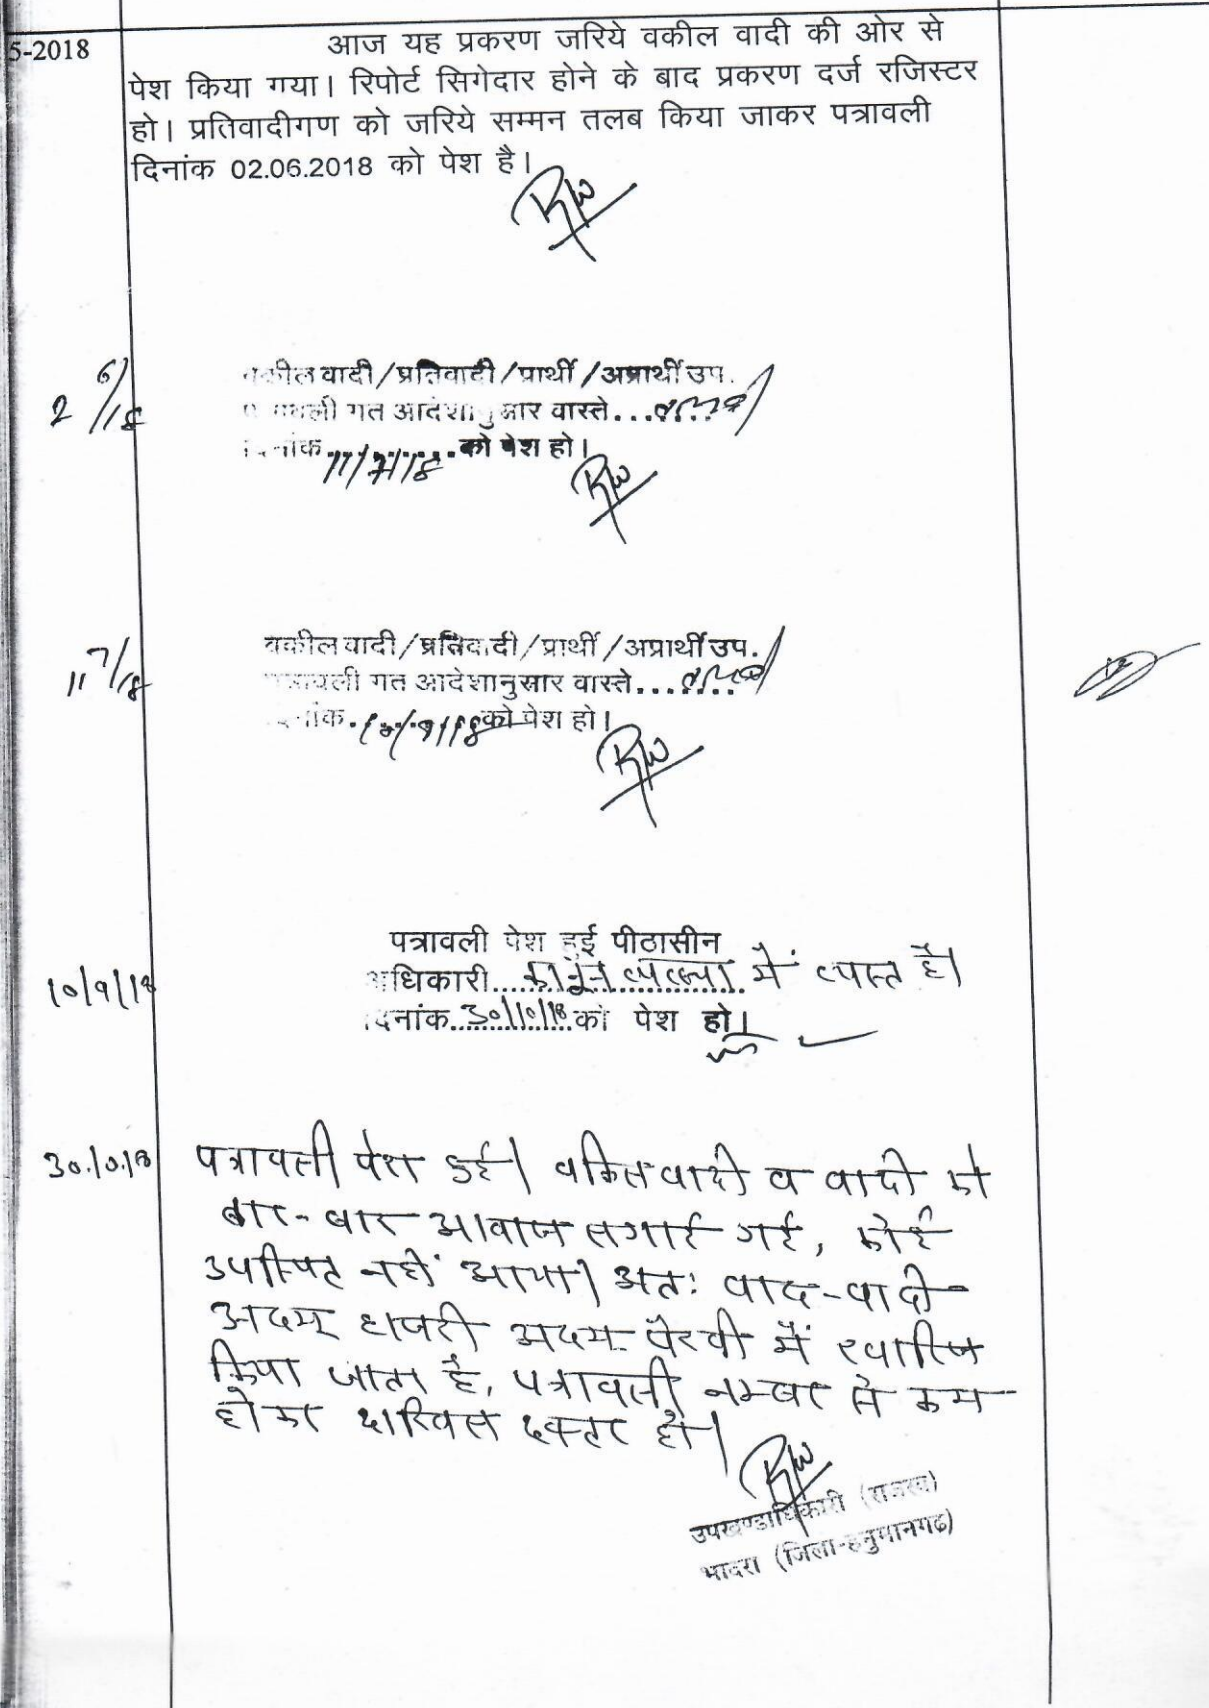 5-2018
आज यह प्रकरण जरिये वकील वादी की ओर से
पेश किया गया। रिपोर्ट सिगेदार होने के बाद प्रकरण दर्ज रजिस्टर
हो। प्रतिवादीगण को जरिये सम्मन तलब किया जाकर पत्रावली
दिनांक 02.06.2018 को पेश है।
2 6/18
वकील वादी/प्रतिवादी/प्रार्थी/अप्रार्थी उप.
पत्रावली गत आदेशानुसार वास्ते...
दिनांक 11/7/18 को पेश हो।
11 7/18
वकील वादी/प्रतिवादी/प्रार्थी/अप्रार्थी उप.
पत्रावली गत आदेशानुसार वास्ते...
दिनांक 10/9/18 को पेश हो।
10/9/18
पत्रावली पेश हुई पीठासीन
अधिकारी कानून व्यवस्था में व्यस्त है।
दिनांक 30/10/18 को पेश हो।
30.10.18
पत्रावली पेश हुई। वकिल वादी व वादी को
बार-बार आवाज लगाई गई, कोई
उपस्थित नहीं आया। अतः वाद-वादी
अदम हाजरी अदम पैरवी में खारिज
किया जाता है, पत्रावली नम्बर से कम
होकर दाखिल दफ्तर हो।
उपखण्डाधिकारी (राजस्व)
भादरा (जिला-हनुमानगढ)